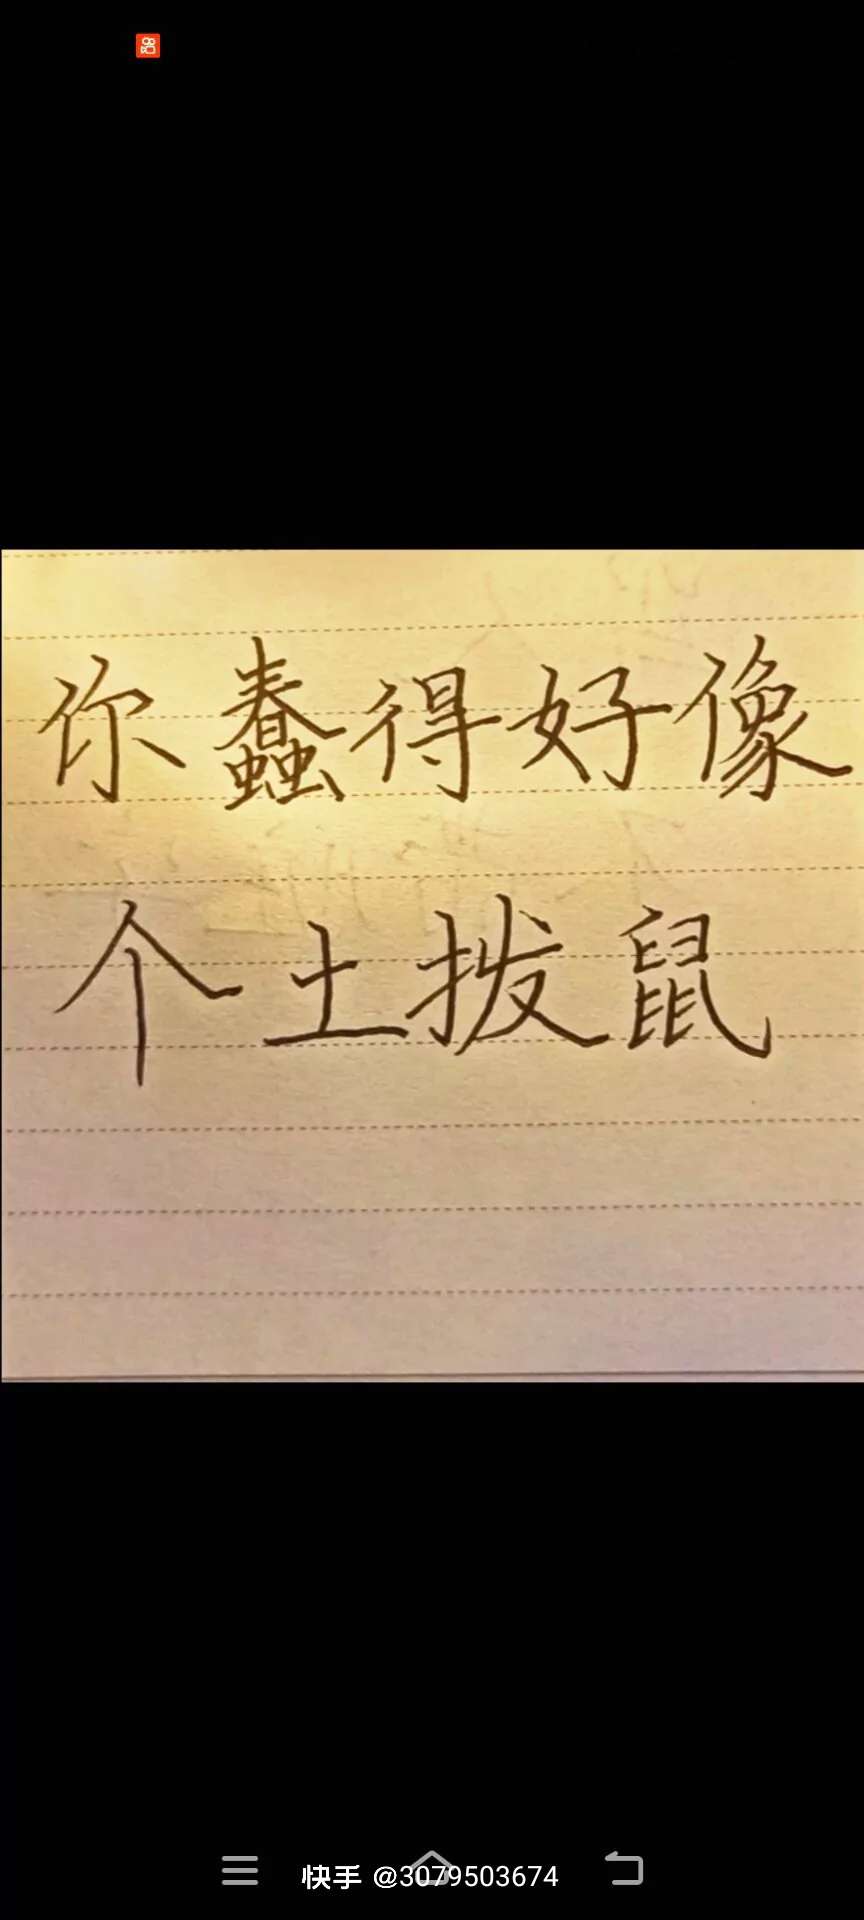 你蠢得好像
个土拨鼠
快手 @3079503674